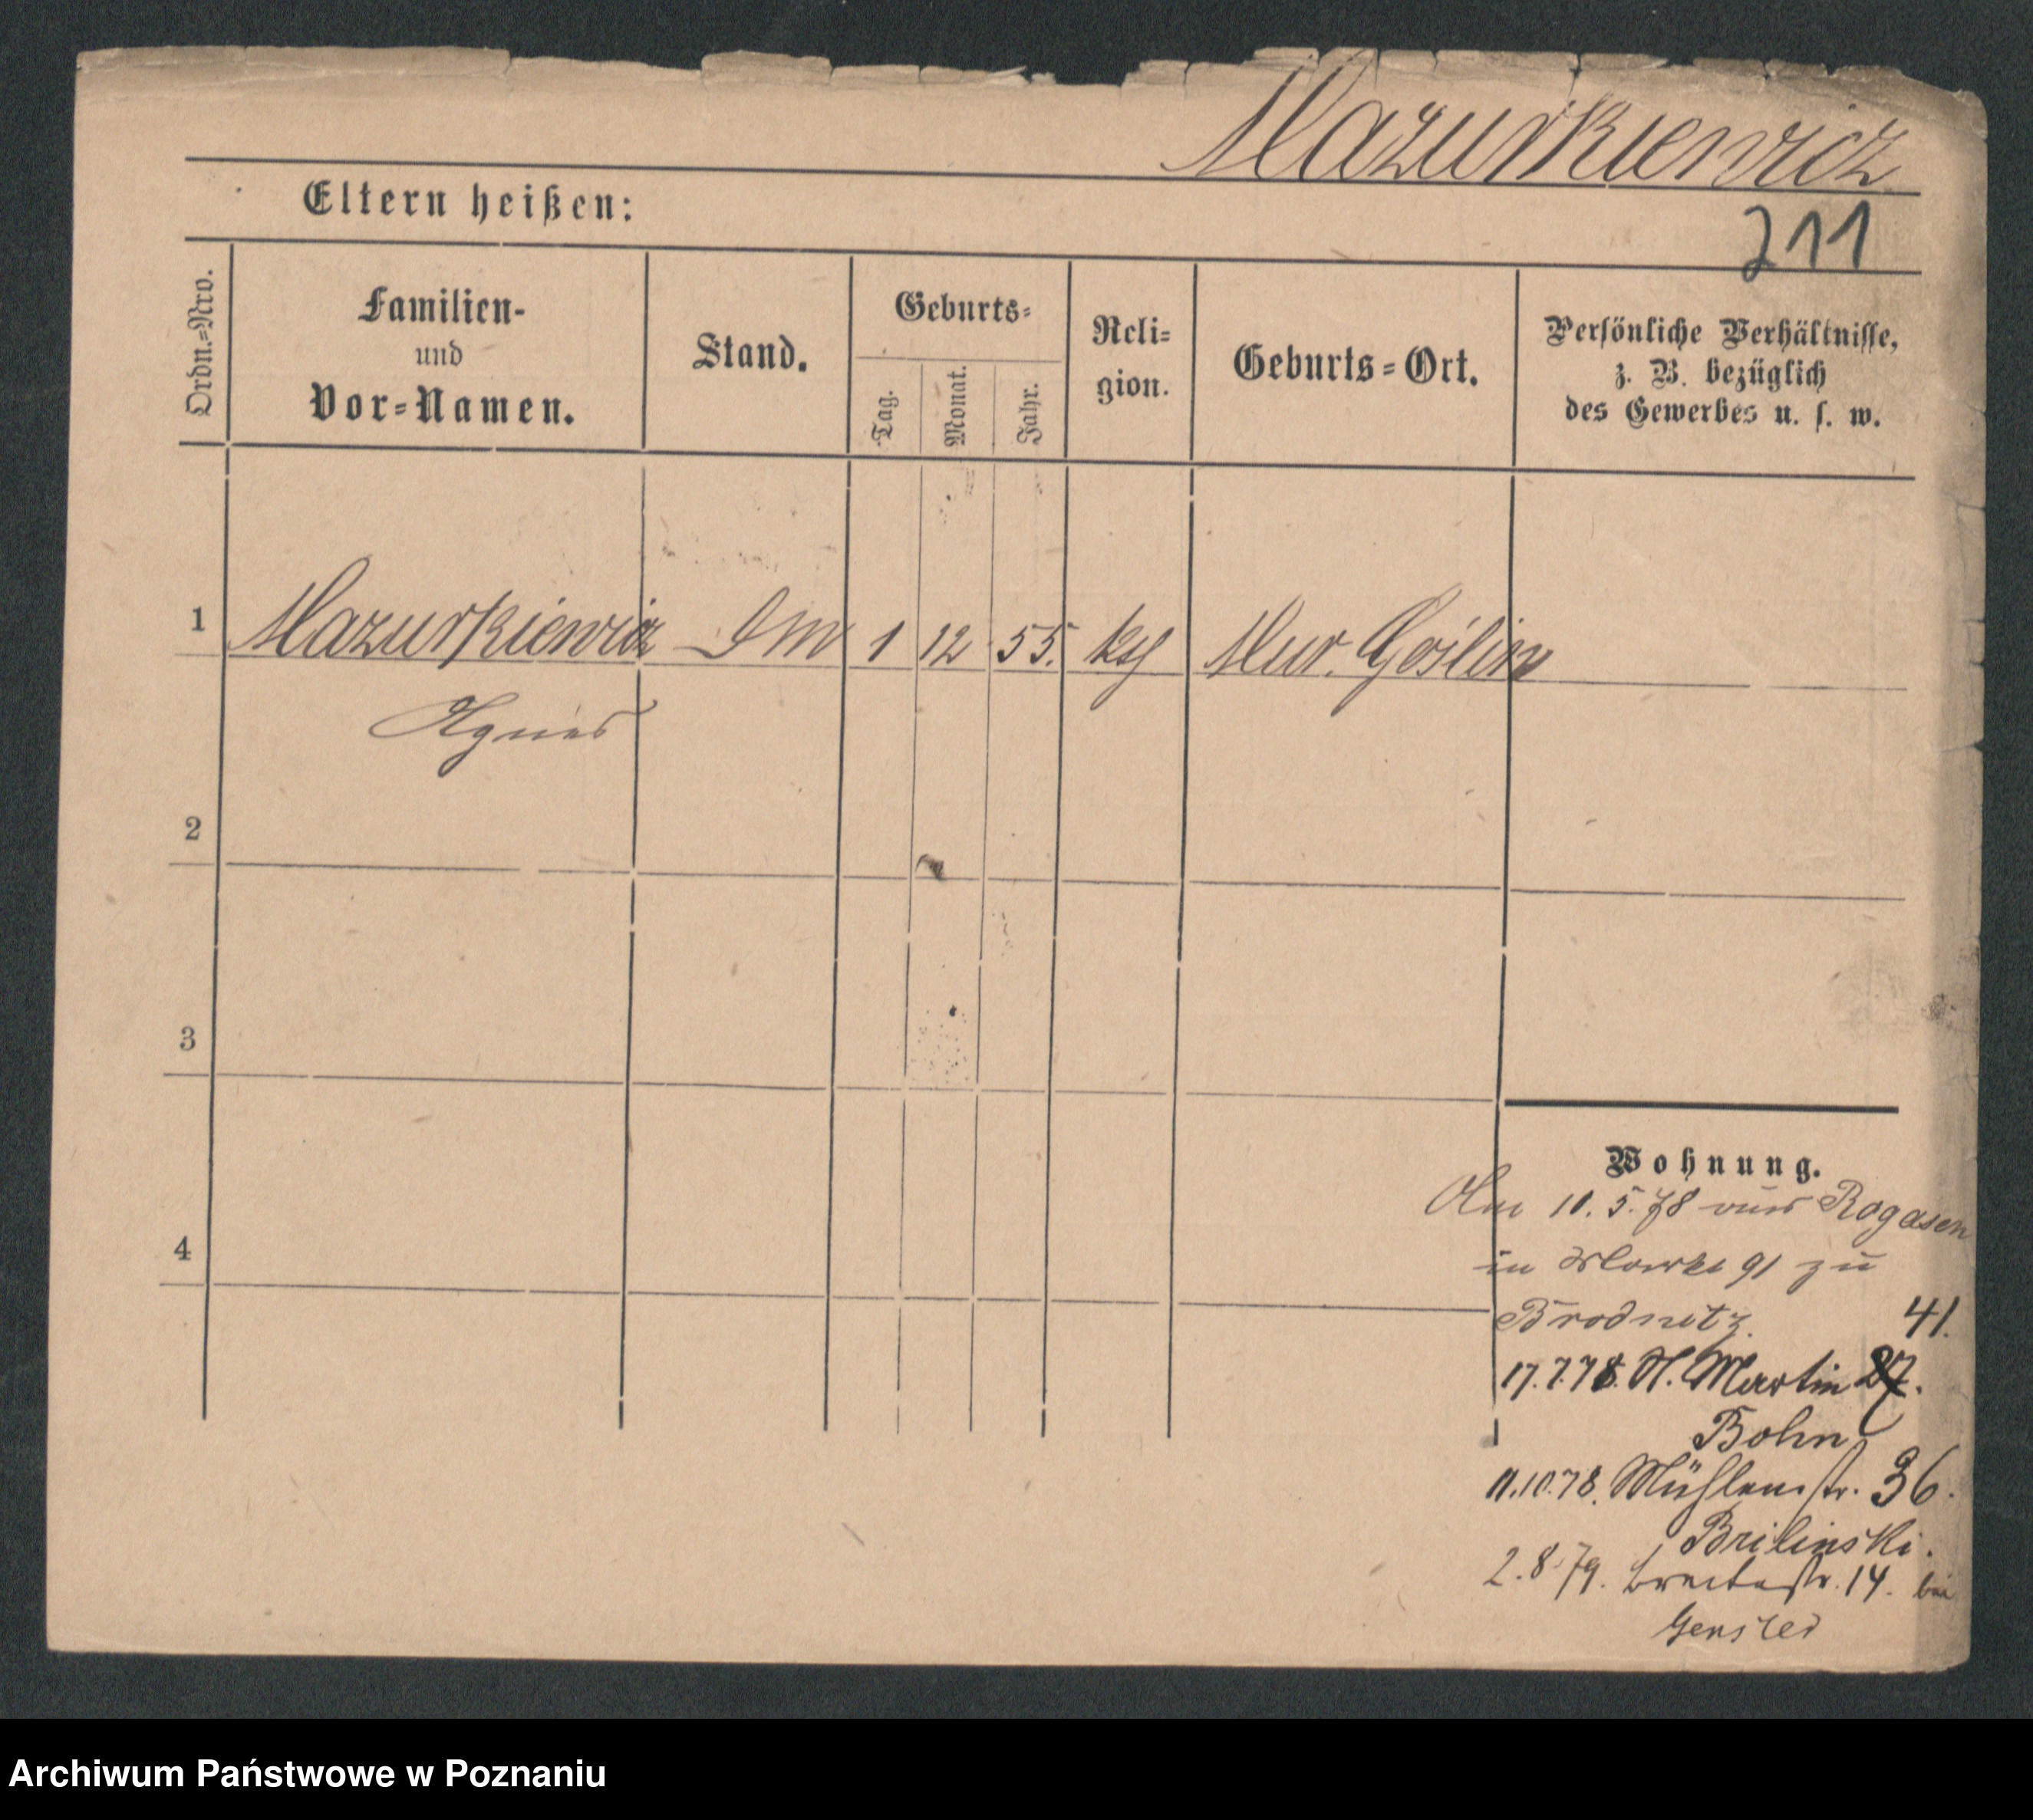 Mazurkiewicz
Eltern heißen:
211
Ordn.=Nro.
Familien-
und
Vor=Namen.
Stand.
Geburts=
Tag.
Monat.
Jahr.
Reli=
gion.
Geburts=Ort.
Persönliche Verhältnisse,
z. B. bezüglich
des Gewerbes u. s. w.
1 Mazurkiewicz 1 12 55. Mur. Goslin
Agnes
2
3
4
Wohnung.
10. 5. 78 aus Rogasen
in Markt 91 zu
Brodnitz. 41.
17.7.78. St. Martin 27.
Bohn
11.10.78. Mühlenstr. 36.
Brilinski.
2.8.79. Breitestr. 14. bei
Gensler
Archiwum Państwowe w Poznaniu